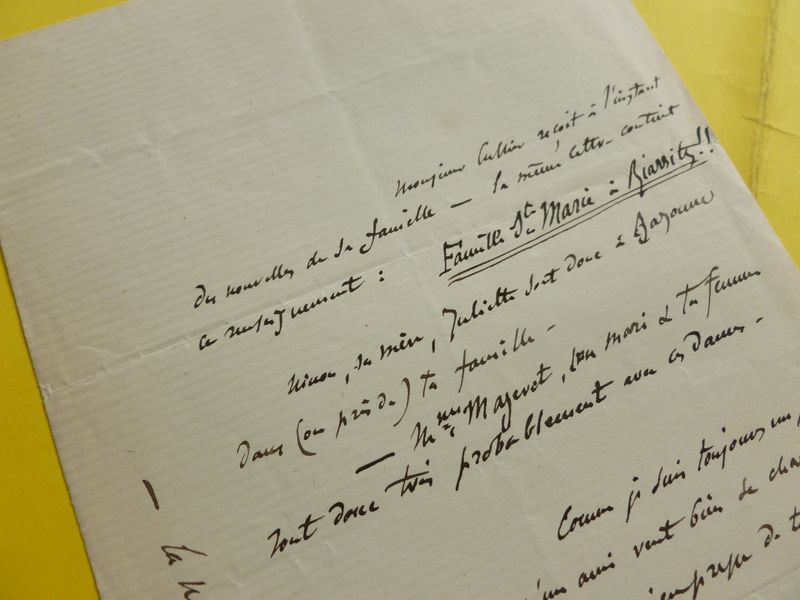 Monsieur reçoit à l'instant
des nouvelles de sa famille — la même lettre contient
ce renseignement : Famille Ste Marie à Biarritz !!
Ninon, sa mère, Juliette sont donc à Bayonne
dans (ou près de) ta famille —
— Mme Mayeret, son mari & ta femme
sont donc très probablement avec ces dames —
Comme je suis toujours un
un ami veut bien se
de
— la